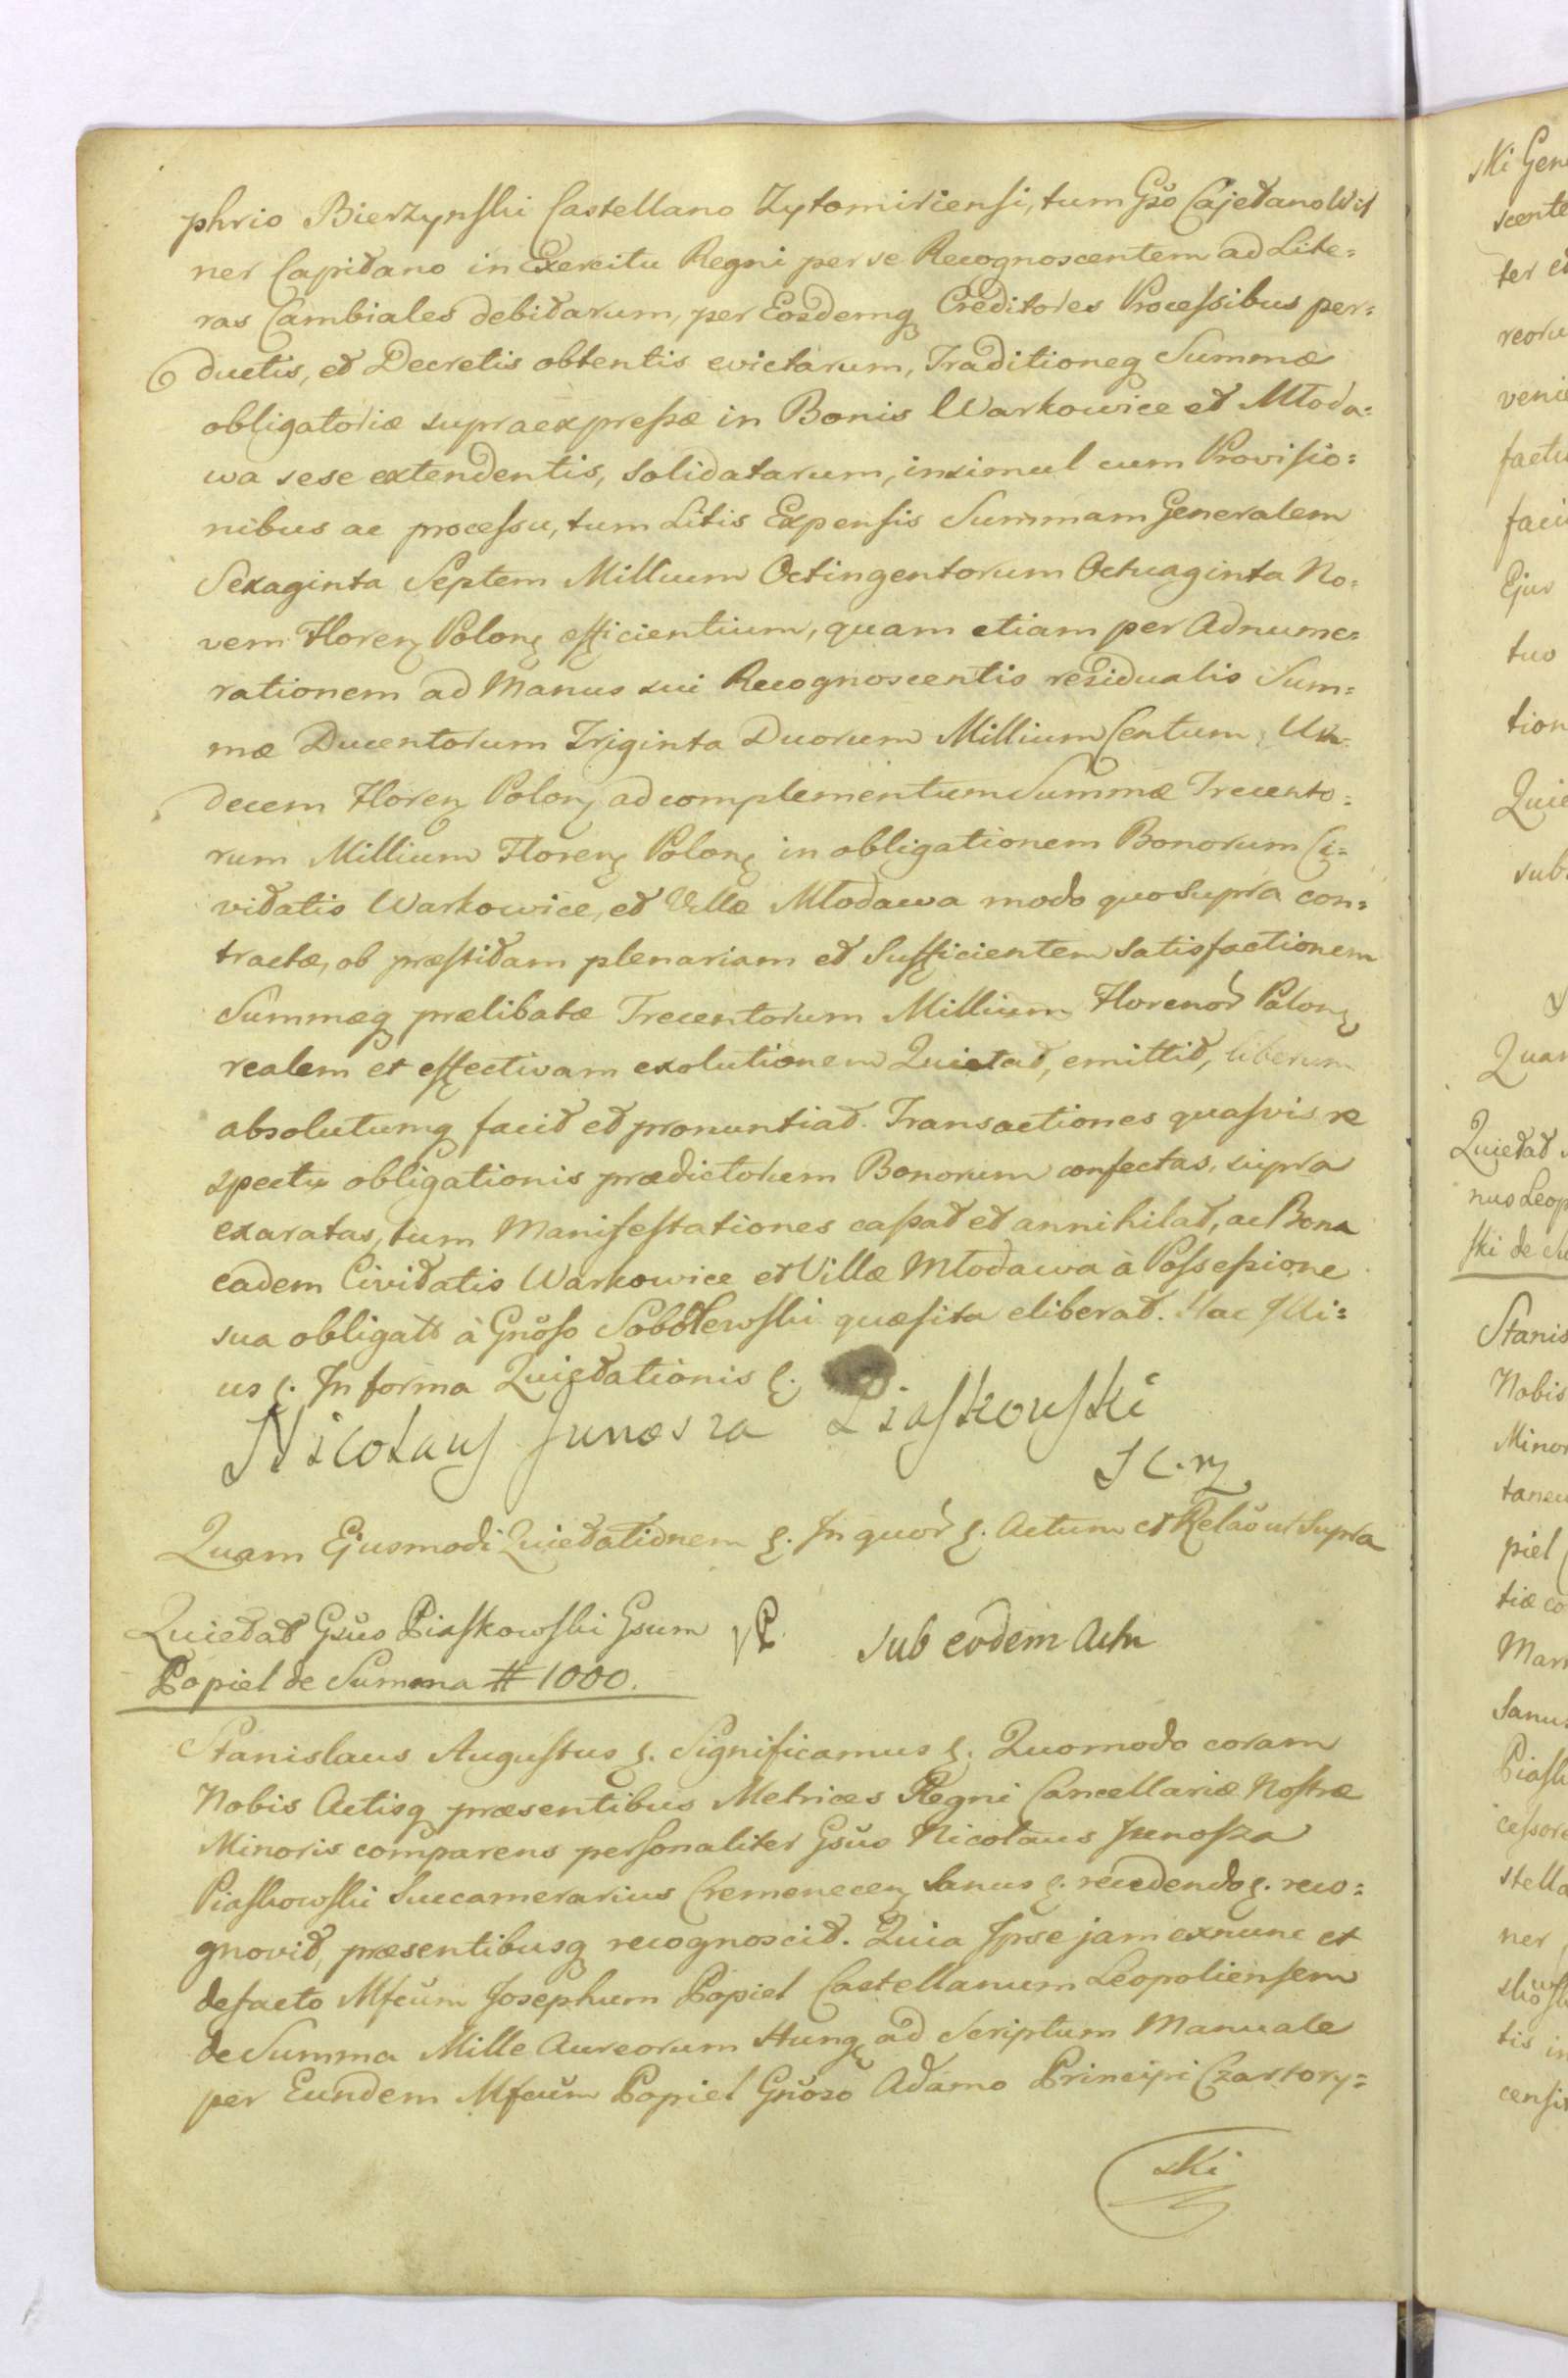 phrio Bierzynski Castellano Zytomiriensi, tum Gso Cajetano Wit
ner Capitano in Exercitu Regni per se Recognoscentem ad Lite=
ras Cambiales debitarum, per Eosdemq Creditores Processibus per=
ductis, et Decretis obtentis evictarum, Traditioneq Summæ
obligatoriæ supraexpressæ in Bonis Warkowice et Młoda=
wa sese extendentis, solidatarum, insimul cum Provisio=
nibus ac processu, tum Litis Expensis Summam Generalem
Sexaginta Septem Millium Octingentorum Octuaginta No=
vem Floren Polon efficientium, quam etiam per Adnume=
rationem ad Manus sui Recognoscentis residualis Sum=
mæ Ducentorum Triginta Duorum Millium Centum Un
decem Floren Polon ad complementum Summæ Trecento=
rum Millium Floren Polon in obligationem Bonorum Ci=
vitatis Warkowice, et Villæ Młodawa modo quo supra con=
tractæ, ob præstitam plenariam et Sufficientem satisfactionem
Summæq prælibatæ Trecentorum Millium Florenor Polon
realem et effectivam exolutionem Quietat, emittit, liberum
absolutumq facit et pronuntiat. Transactiones quasvis re
spectu obligationis prædictorum Bonorum confectas, supra
exaratas, tum Manifestationes cassat et annihilat, ac Bona
eadem Civitatis Warkowice et Villæ Młodawa à Possessione
sua obligatt à Gnoso Sobolewski quæsita eliberat. Hac Illi=
us ę. In forma Quietationis ę.
Nicolaus Junosza Piaskowski
S C. K
Quam Ejusmodi Quietationem ę. In quor ę. Actum et Relao ut Supra
Quietat Gsus Piaskowski Gsum
Popiel de Summa # 1000.
sub eodem Actu
Stanislaus Augustus ę. Significamus ę. Quomodo coram
Nobis Actisq præsentibus Metrices Regni Cancellariæ Nostræ
Minoris comparens personaliter Gsus Nicolaus Junosza
Piaskowski Succamerarius Cremenecen Sanus ę. recedendo ę. reco=
gnovit, præsentibusq recognoscit. Quia Ipse jam exnunc et
defacto Mfcum Josephum Popiel Castellanum Leopoliensem
de Summa Mille Aureorum Hung ad Scriptum Manuale
per Eundem Mfcum Popiel Gnoso Adamo Principi Czartory=
ski